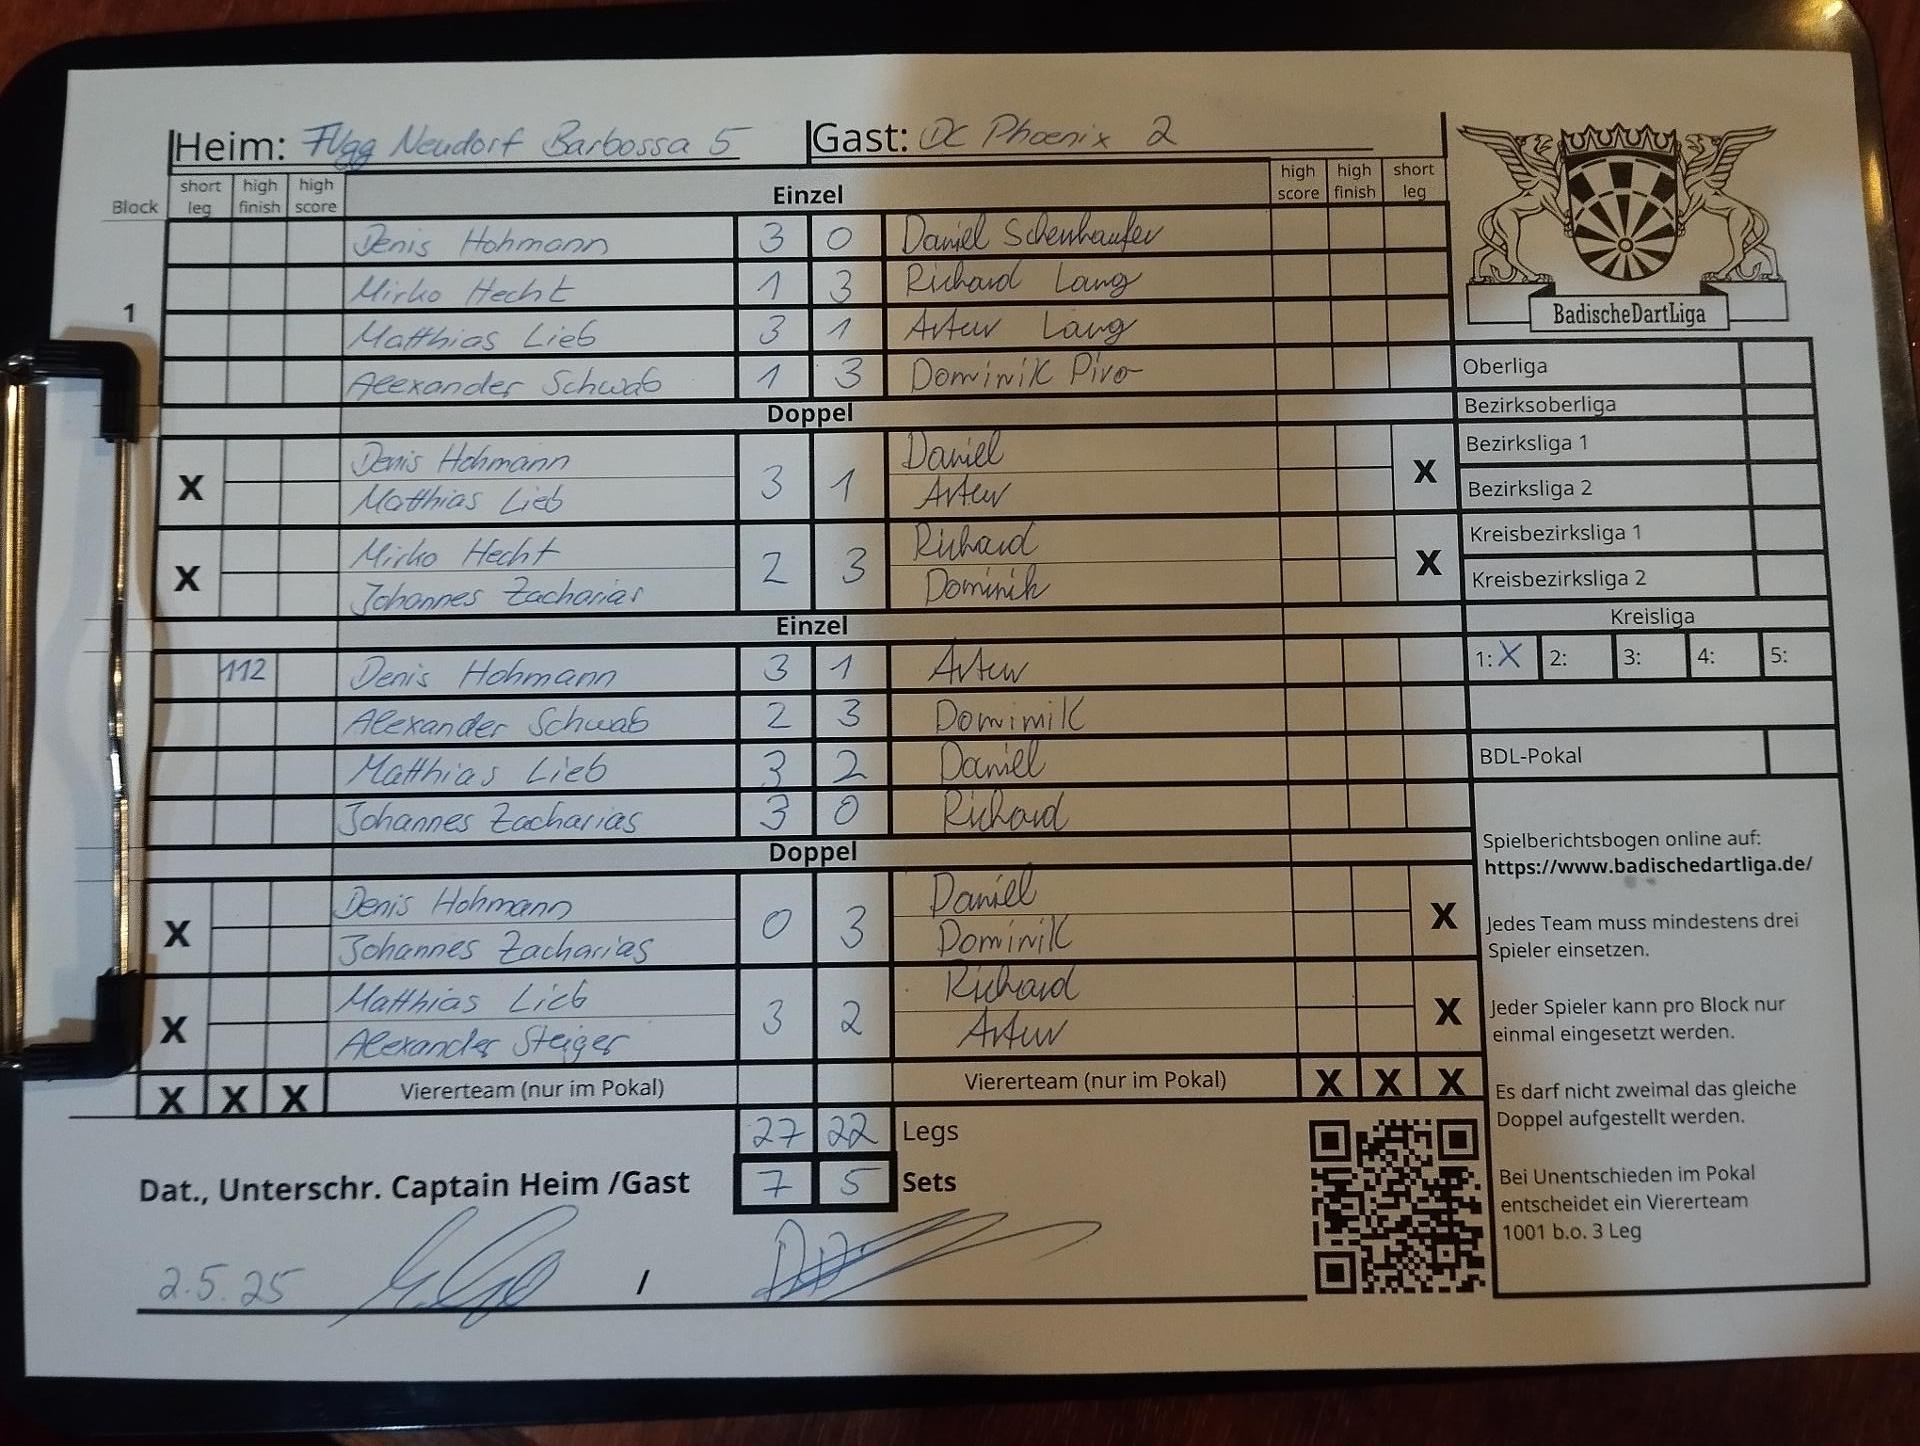 Heim: FVgg Neudorf Barbossa 5 Gast: DC Phoenix 2
Block short leg high finish high score Einzel high score high finish short leg
Denis Hohmann 3 0 Daniel Schenhaufer
Mirko Hecht 1 3 Richard Lang
1
Matthias Lieb 3 1 Artur Lang
Alexander Schwab 1 3 Dominik Pivo
Doppel
X Denis Hohmann 3 1 Daniel X
Matthias Lieb Artur
X Mirko Hecht 2 3 Richard X
Johannes Zacharias Dominik
Einzel
112 Denis Hohmann 3 1 Artur
Alexander Schwab 2 3 Dominik
Matthias Lieb 3 2 Daniel
Johannes Zacharias 3 0 Richard
Doppel
X Denis Hohmann 0 3 Daniel X
Johannes Zacharias Dominik
X Matthias Lieb 3 2 Richard X
Alexander Steiger Artur
X X X Vierterteam (nur im Pokal) Vierterteam (nur im Pokal) X X X
27 22 Legs
7 5 Sets
Dat., Unterschr. Captain Heim /Gast
2.5.25 /
BadischeDartLiga
Oberliga
Bezirksoberliga
Bezirksliga 1
Bezirksliga 2
Kreisbezirksliga 1
Kreisbezirksliga 2
Kreisliga
1: X 2: 3: 4: 5:
BDL-Pokal
Spielberichtsbogen online auf:
https://www.badischedartliga.de/
Jedes Team muss mindestens drei
Spieler einsetzen.
Jeder Spieler kann pro Block nur
einmal eingesetzt werden.
Es darf nicht zweimal das gleiche
Doppel aufgestellt werden.
Bei Unentschieden im Pokal
entscheidet ein Vierterteam
1001 b.o. 3 Leg